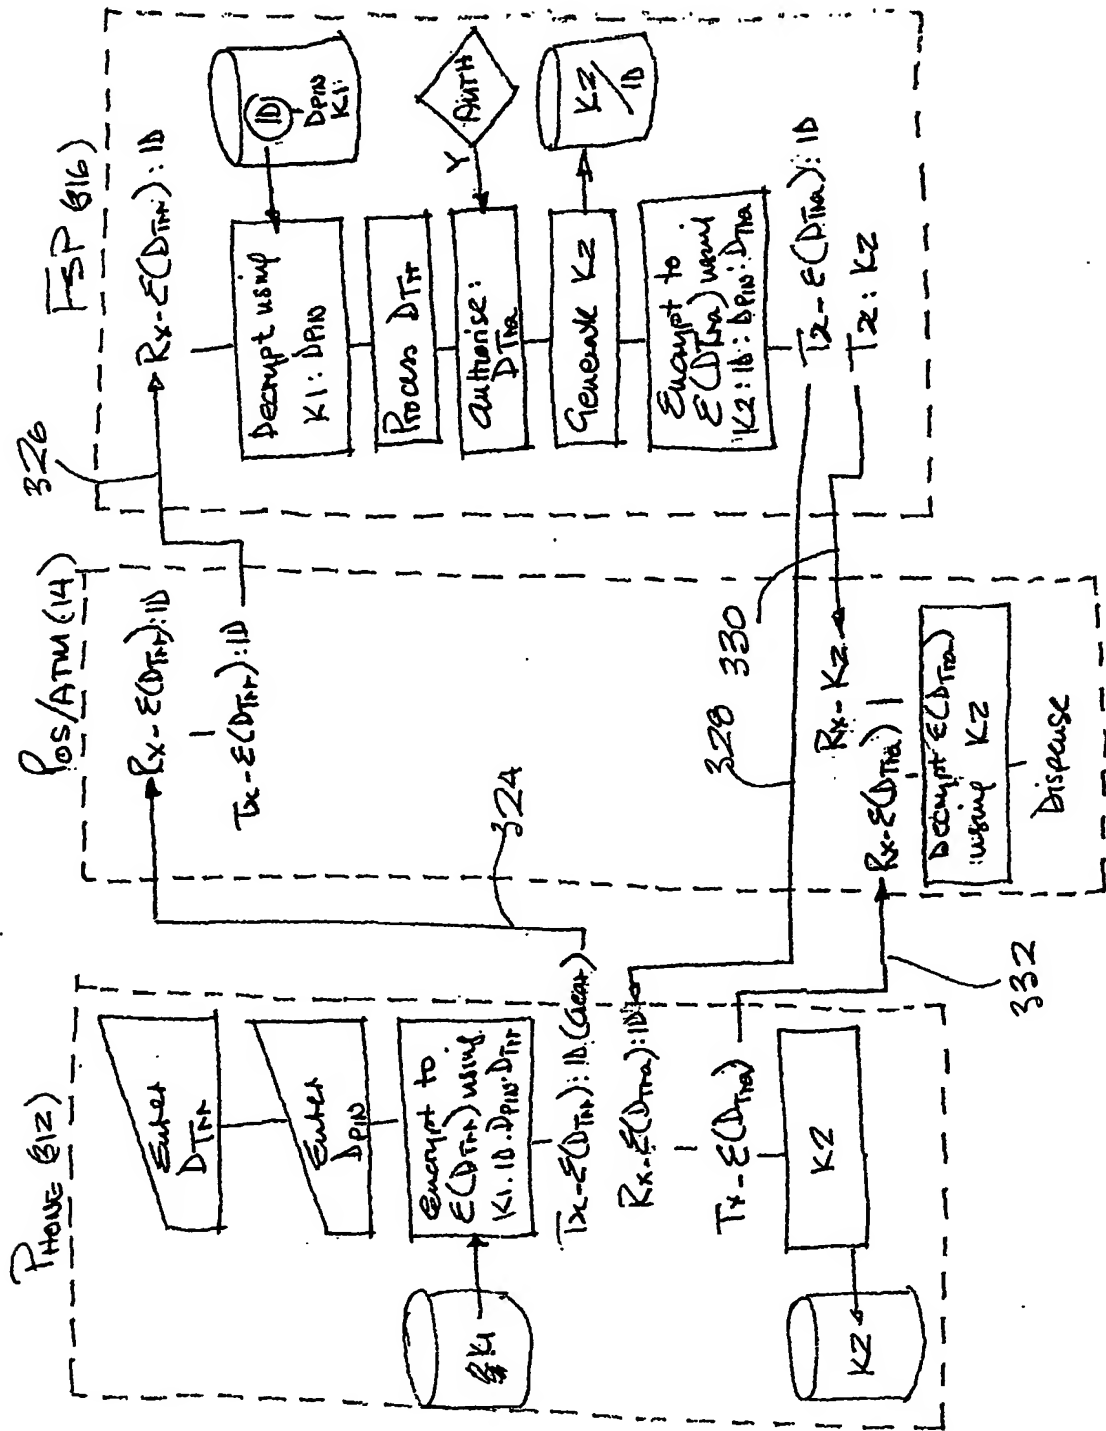 PHONE (312)
Enter
DTrr
Enter
DPIN
Encrypt to
E(DTrr) using
K1.ID.DPIN.DTrr
K1
Tx-E(DTrr):ID (Clear)
Rx-E(DTra):ID
Tx-E(DTra)
K2
K2
POS/ATM (14)
Rx-E(DTrr):ID
Tx-E(DTrr):ID
324
328
330
Rx-K2
Rx-E(DTra)
Decrypt E(DTra)
:using K2
Dispense
332
FSP (316)
326
Rx-E(DTrr):ID
Decrypt using
K1:DPIN
ID
DPIN
K1:
Process DTrr
Authorise:
DTra
Y
AUTH
Generate K2
K2/
ID
Encrypt to
E(DTra) using
K2:ID:DPIN:DTra
Tx-E(DTra):ID
Tx:K2